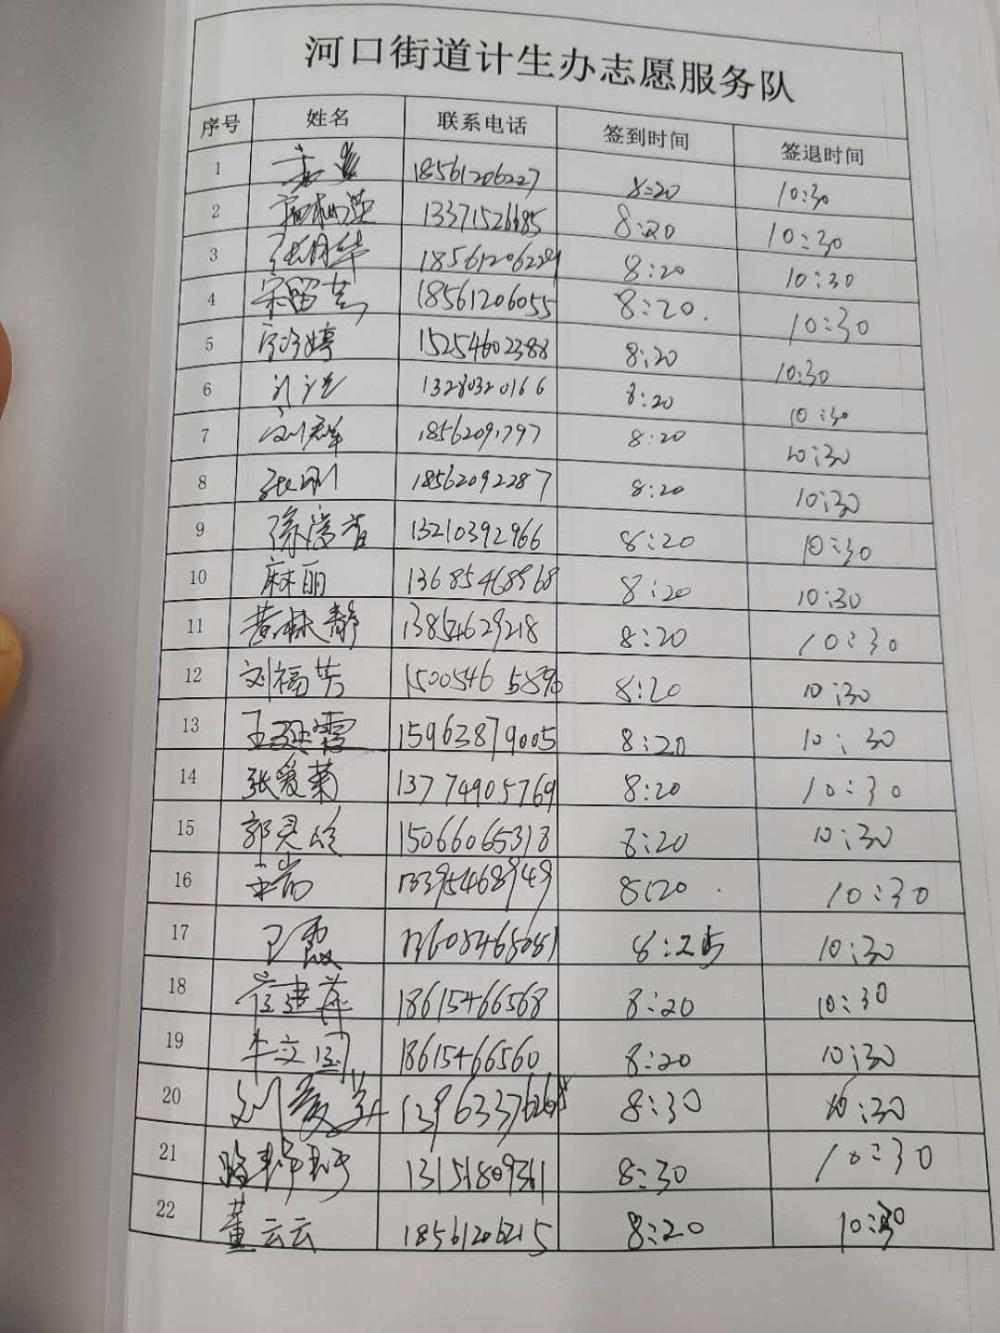 河口街道计生办志愿服务队
序号 姓名 联系电话 签到时间 签退时间
1 18561206227 8:20 10:30
2 13371526685 8:20 10:30
3 张月华 8:20 10:30
4 宋留芳 18561206055 8:20. 10:30
5 婷 15254602388 8:20 10:30
6 13280320166 8:20 10:30
7 刘君军 18562091797 8:20 10:30
8 张刚 18562092287 8:20 10:30
9 13210392966 8:20 10:30
10 麻丽 13685468968 8:20 10:30
11 黄林静 13854629218 8:20 10:30
12 刘福芳 8:20 10:30
13 霞 15963879005 8:20 10:30
14 张爱菊 13774905769 8:20 10:30
15 郭灵 15066065318 8:20 10:30
16 13395468949 8:20 10:30
17 霞 8:25 10:30
18 18615466568 8:20 10:30
19 18615466560 8:20 10:30
20 刘爱 8:30 10:30
21 8:30 10:30
22 董云云 18561206215 8:20 10:30